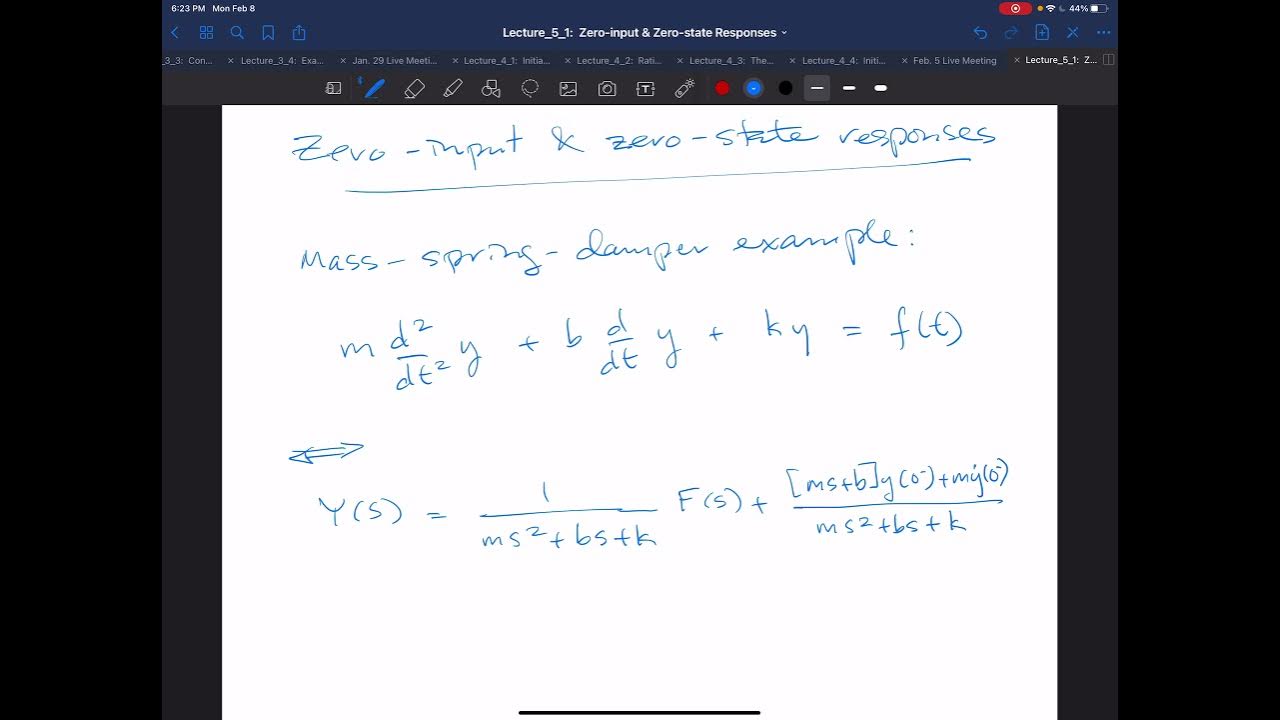 6:23 PM Mon Feb 8
44%
Lecture_5_1: Zero-input & Zero-state Responses
_3_3: Con...
Lecture_3_4: Exa...
Jan. 29 Live Meeti...
Lecture_4_1: Initia...
Lecture_4_2: Rati...
Lecture_4_3: The...
Lecture_4_4: Initi...
Feb. 5 Live Meeting
Lecture_5_1: Z...
Zero-input & zero-state responses
Mass-spring-damper example:
m d²/dt² y + b d/dt y + ky = f(t)
⟺
Y(s) = 1/(ms²+bs+k) F(s) + ([ms+b]y(0⁻)+mẏ(0⁻))/(ms²+bs+k)